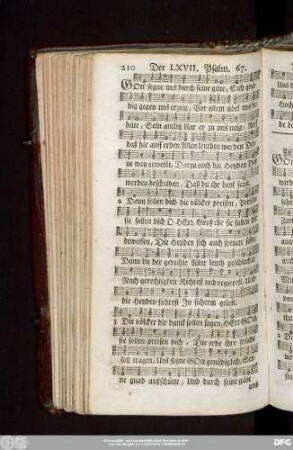 210 Der LXVII. Psalm. 67.
GOtt segne uns durch seine güte, Sich gnä-
dig gegen uns erzeig, Vor allem übel uns be-
hüte, Sein antlitz klar er zu uns neig: Auf
daß hie auff erden Allen leuthen werden Dei-
ne weg geweist, Darzu auch die Heyden Dein
werden bescheiden, Daß du ihr heyl seyst.
2 Dann sollen dich die völcker preisen, Preisen
sie sollen dich O HErr, Groß ehr sie sollen dir
beweisen, Die Heyden sich auch freuen sehr,
Dann du der gerechte Aller leuth geschlechte
Nach gerechtigkeit Richtest und regierest, Und
die Heyden führest In sicherm geleit.
3 Die völcker dir danck sollen sagen, HErr GOtt
sie sollen preisen dich, Die erde ihre früchte
soll tragen, Uns segne GOtt genädiglich, Sei-
ne gnad außschütte, Und durch seine güte